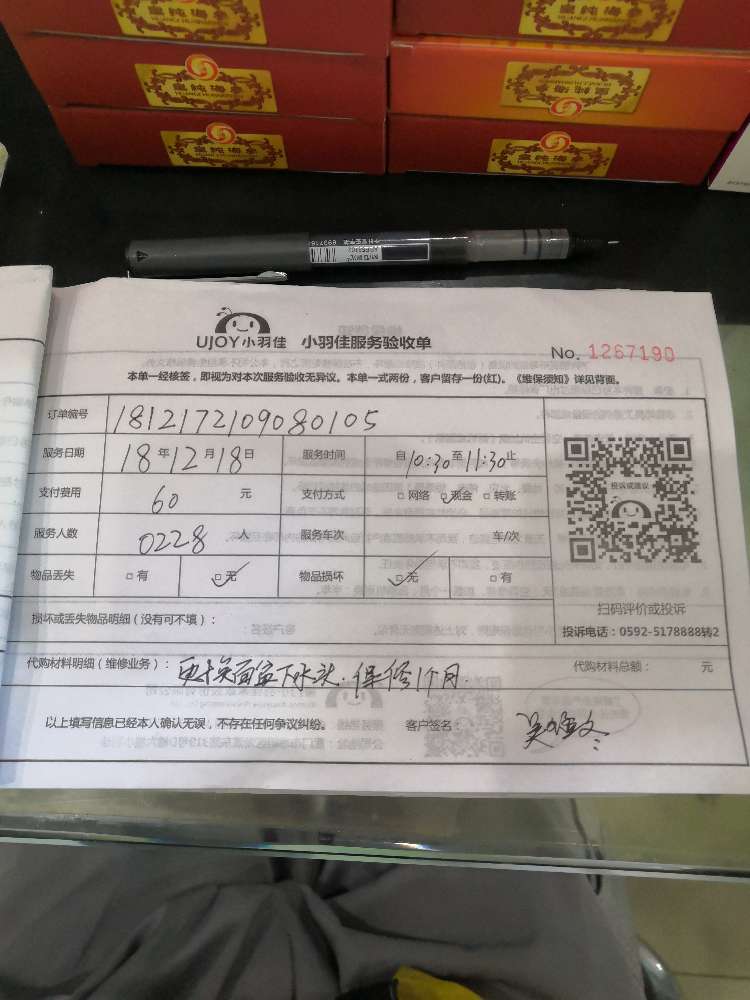 皇纯海
皇纯海
皇纯海
皇纯海
皇纯海
皇纯海
UJOY小羽佳 小羽佳服务验收单
No. 1267190
本单一经核签，即视为对本次服务验收无异议。本单一式两份，客户留存一份(红)。《维保须知》详见背面。
订单编号 1812172109080105
服务日期 18 年 12 月 18 日 服务时间 自 10:30 至 11:30 止
支付费用 60 元 支付方式 □ 网络 □ 现金 □ 转账
服务人数 0228 人 服务车次 车/次
物品丢失 □ 有 □ 无 物品损坏 □ 无 □ 有
投诉或建议
扫码评价或投诉
投诉电话：0592-5178888转2
损坏或丢失物品明细（没有可不填）：
代购材料明细（维修业务）： 更换面盆下水头.保修1个月. 代购材料总额： 元
以上填写信息已经本人确认无误，不存在任何争议纠纷。 客户签名：